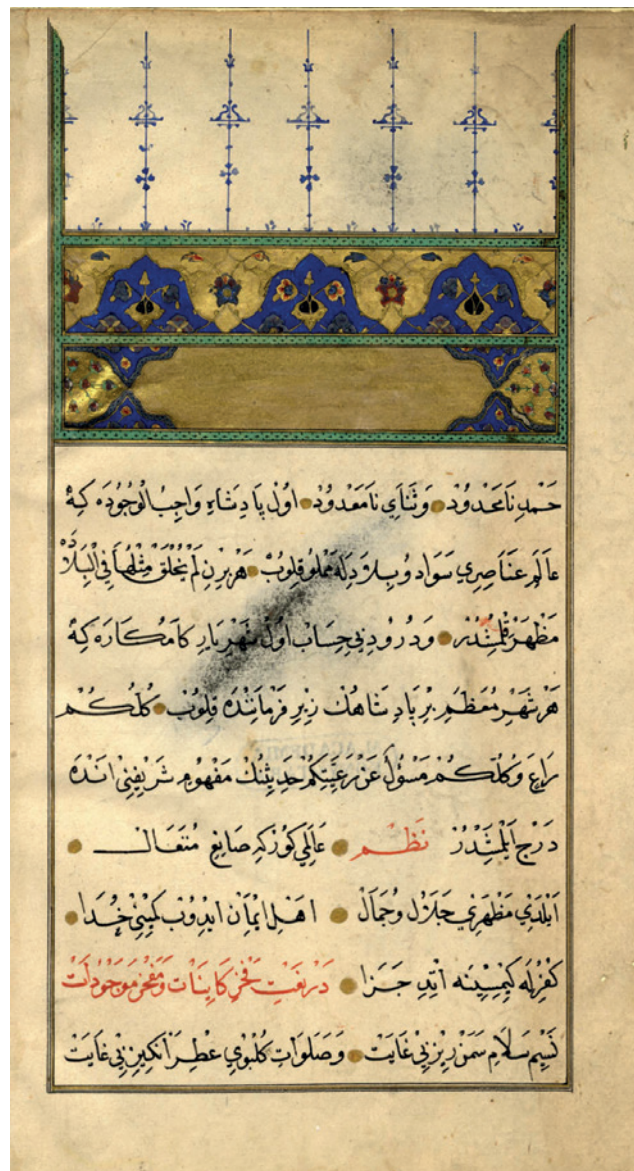 حَمْدِ نَامَحْدُودْ وَثَنَايِ نَامَعْدُودْ اوُلْ پَادِشَاهِ وَاجِبُ الْوُجُودَه كِهْ
عَالَمِ عَنَاصِرِي سَوَاد وُبِلَادِلَه مَمْلُو قِلُوبْ هَرْبِرِنِ لَمْ يُخْلَقْ مِثْلُهَا فِي الْبِلَادَه
مَظْهَرْ قِلْمِشْدُرْ وَدُرُودِ بِي حِسَابْ اوُلْ شَهْرِيَارِ كَامْكَارَه كِهْ
هَرْ شَهْرِ مُعَظَّمِ بِرْ پَادِشَاهكْ زِيرِ فَرْمَانِنْدَه قِلُوبْ كُلُّكُمْ
رَاعٍ وَكُلُّكُمْ مَسْؤُلٌ عَنْ رَعِيَّتِكُمْ حَدِيثِنُكْ مَفْهُومِ شَرِيفِنِيْ انْدَه
دَرْج ايْلَمِشْدُرْ نَظْم عَالَمِي كوُرْ كِه صَانِعِ مُتَعَالْ
ايْلَدِي مَظْهَرِي جَلَالْ وُجَمَالْ اهْلِ ايْمَانْ ايدُوبْ كِمِينِيْ خُدَا
كُفْرلَه كِيمِيسِنَه اتْدِي جَزَا دَرْ نَعْتِ فَخْرِ كَايِنَاتْ وَمَفْخَرِ مَوْجُودَاتْ
نَسِيمِ سَلَامِ سَمَنْ رِيزِ بِي غَايَتْ وَصَلَوَاتِ كُلْبُويِ عِطْرَ انْكِيزِ بِي غَايَتْ